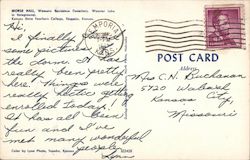 MORSE HALL, Women's Residence Dormitory, Wooster Lake
in foreground.
Kansas State Teachers College, Emporia, Kansas
Hi,
I finally found
some pictures of
the dorm. It has
really been pretty
here. Things are
really hectic getting
enrolled today.
It has all been
fun and I've
met many wonderful
people.
Lynn
Color by Lynn Photo, Topeka, Kansas
EMPORIA
POST CARD
Address
Mrs C. H. Buchanan
5720 Wabash
Kansas City,
Missouri